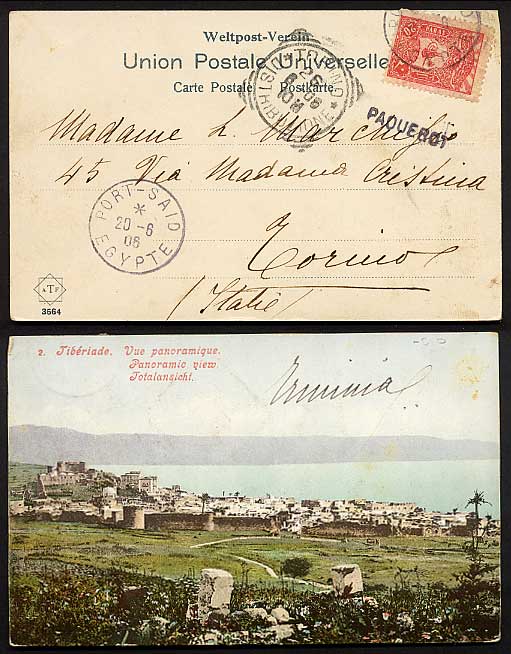 Weltpost-Verein
Union Postale Universelle
Carte Postale Postkarte.
20 PARAS 20
PAQUEBOT
Madame L. Marchisio
45 Via Madama Cristina
Torino
(Italie)
PORT-SAID
20-6
06
EGYPTE
TORINO
26
6 06
10M
DISTRIBUZIONE
ATF
3664
2. Tibériade. Vue panoramique.
Panoramic view.
Totalansicht.
Erminia